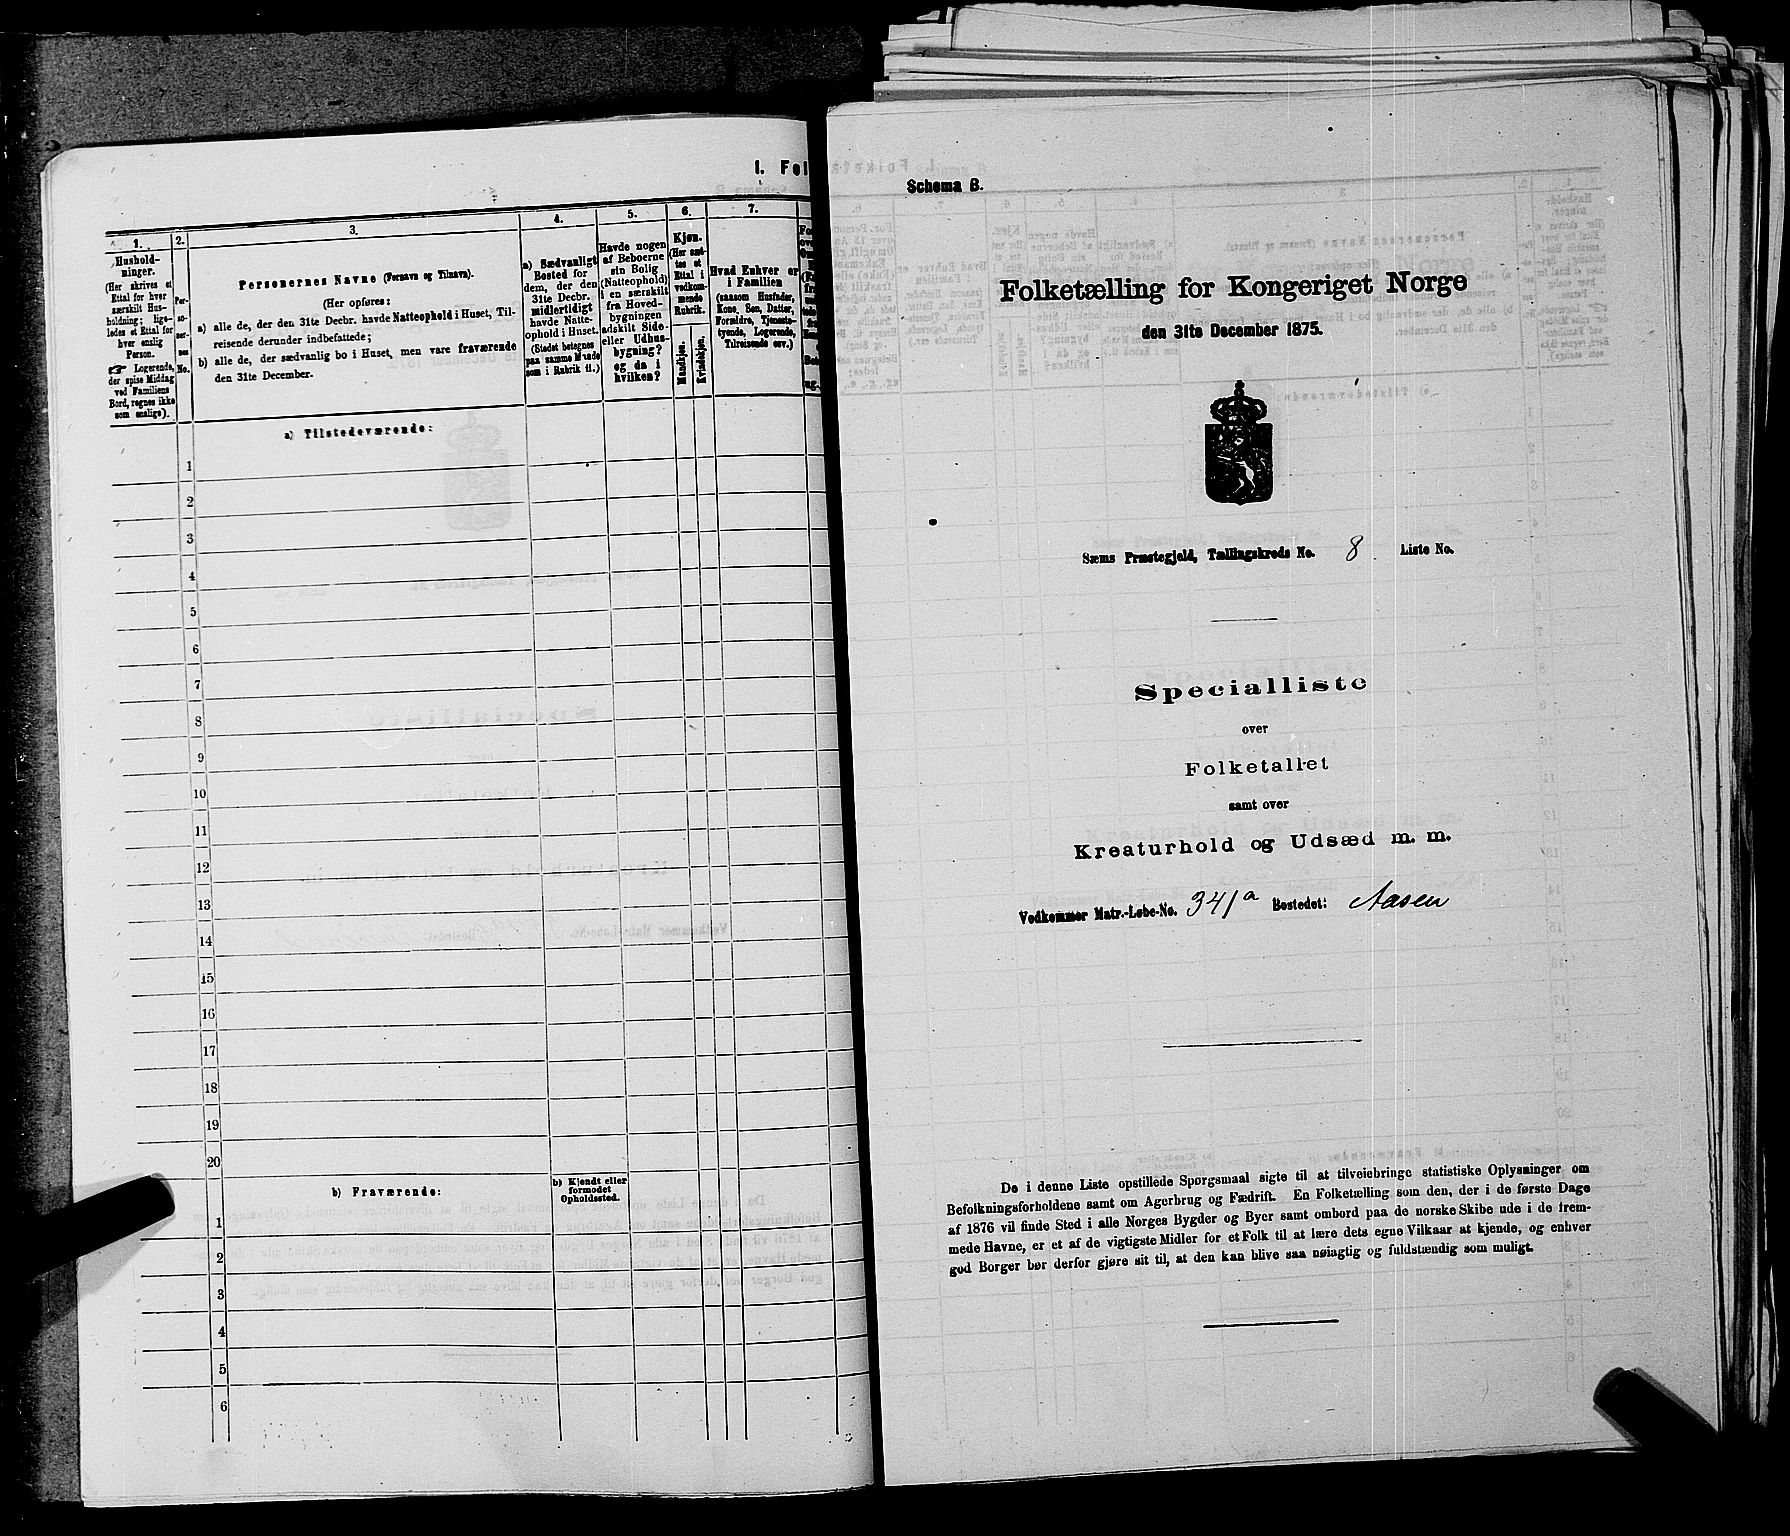 I. Fol
1.
Hushold-
ninger.
(Her skrives et
Ettal for hver
særskilt Hus-
holdning; lige-
ledes et Ettal for
hver enslig
Person.
☞ Logerende,
der spise Middag
ved Familiens
Bord, regnes ikke
som enslige).
2.
Per-
so-
ner-
nes
No.
3.
Personernes Navne (Fornavn og Tilnavn).
(Her opføres:
a) alle de, der den 31te Decbr. havde Natteophold i Huset, Til-
reisende derunder indbefattede;
b) alle de, der sædvanlig bo i Huset, men vare fraværende
den 31te December.
4.
a) Sædvanligt
Bosted for
dem, der den
31te Decbr.
midlertidigt
havde Natte-
ophold i Huset.
(Stedet betegnes
paa samme Maade
som i Rubrik 11.)
5.
Havde nogen
af Beboerne
sin Bolig
(Natteophold)
i en særskilt
fra Hoved-
bygningen
adskilt Side-
eller Udhus-
bygning?
og da i
hvilken?
6.
Kjøn.
(Her sæt-
tes et
Ettal i
vedkom-
mende
Rubrik.
Mandkjøn.
Kvindekjøn.
7.
Hvad Enhver er
i Familien
(saasom Husfader,
Kone, Søn, Datter,
Forældre, Tjeneste-
tyende, Logerende,
Tilreisende osv.)
a) Tilstedeværende:
1
2
3
4
5
6
7
8
9
10
11
12
13
14
15
16
17
18
19
20
b) Fraværende:
b) Kjendt eller
formodet
Opholdssted.
1
2
3
4
5
6
Schema B.
Folketælling for Kongeriget Norge
den 31te December 1875.
Sæms Præstegjeld, Tællingskreds No. 8 Liste No.
Specialliste
over
Folketallet
samt over
Kreaturhold og Udsæd m. m.
Vedkommer Matr.-Løbe-No. 341a Bostedet: Aasen
De i denne Liste opstillede Spørgsmaal sigte til at tilveiebringe statistiske Oplysninger om
Befolkningsforholdene samt om Agerbrug og Fædrift. En Folketælling som den, der i de første Dage
af 1876 vil finde Sted i alle Norges Bygder og Byer samt ombord paa de norske Skibe ude i de frem-
mede Havne, er et af de vigtigste Midler for et Folk til at lære dets egne Vilkaar at kjende, og enhver
god Borger bør derfor gjøre sit til, at den kan blive saa nøiagtig og fuldstændig som muligt.